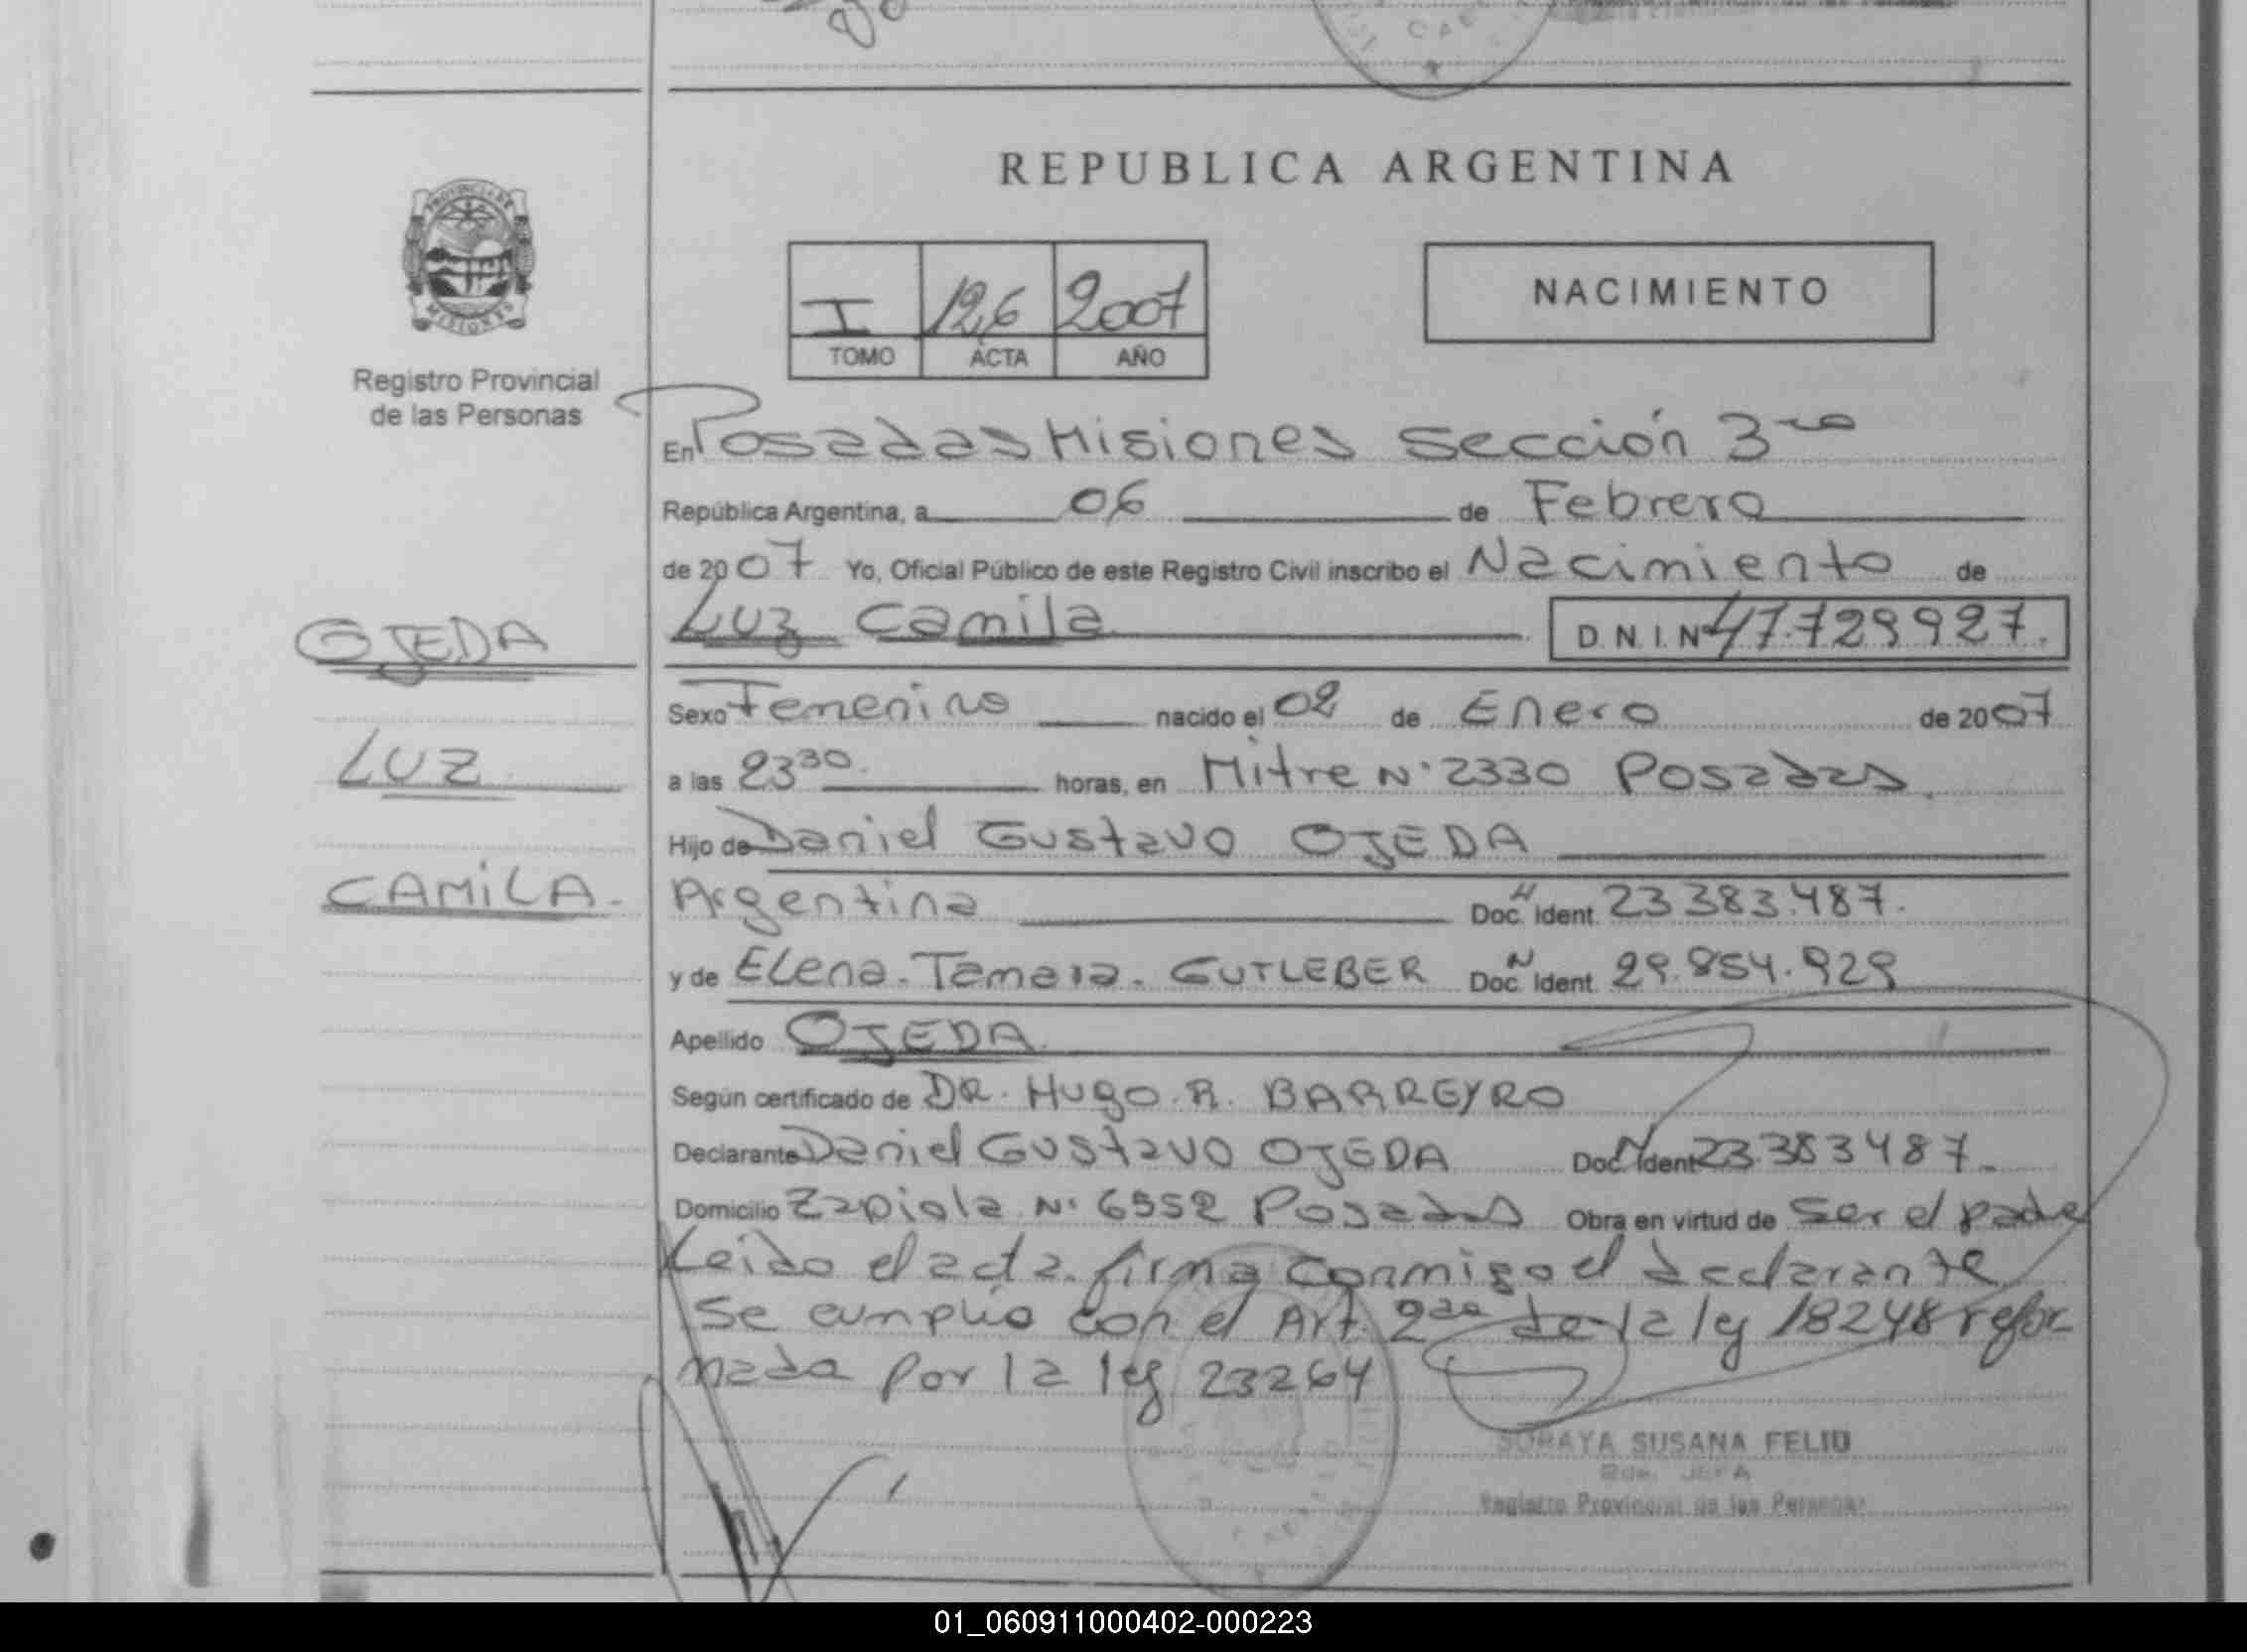 REPUBLICA ARGENTINA
PROVINCIA DE
MISIONES
Registro Provincial
de las Personas
I 126 2007
TOMO ACTA AÑO
NACIMIENTO
En Posadas Misiones Sección 3ra
República Argentina, a 06 de Febrero
de 2007 Yo, Oficial Público de este Registro Civil inscribo el Nacimiento de
Luz Camila D.N.I.N 47.729927.
OJEDA
LUZ
CAMILA.
Sexo Femenino nacido el 02 de Enero de 2007
a las 23 30. horas, en Mitre N° 2330 Posadas.
Hijo de Daniel Gustavo OJEDA
Argentina Doc. N Ident. 23 383.487.
y de Elena. Tamara. GUTLEBER Doc. N Ident. 29.854.929
Apellido OJEDA
Según certificado de DR. Hugo. R. BARREYRO
Declarante Daniel Gustavo OJEDA Doc. N Ident 23 383487.
Domicilio Zapiola N° 6552 Posadas Obra en virtud de ser el padre
Leido el acta firma conmigo el declarante
se cumplio con el Art. 2do de la ley 18248 refor
mada por la ley 23264
SORAYA SUSANA FELIU
2da. JEFA
Registro Provincial de las Personas
01_060911000402-000223